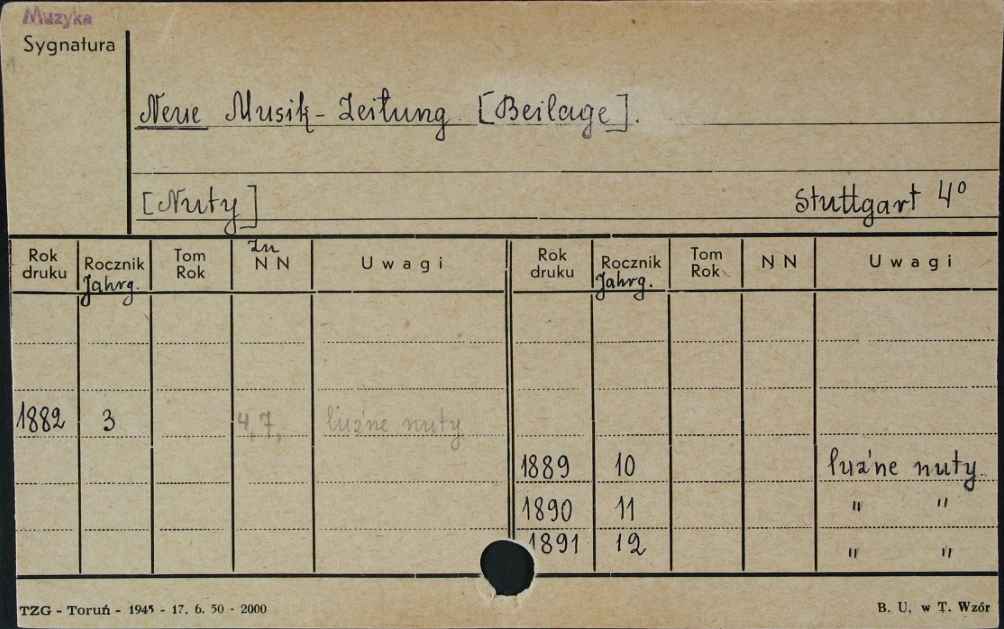 Muzyka
Sygnatura
Neue Musik-Zeitung [Beilage].
[Nuty] Stuttgart 4°
Rok druku Rocznik Jahrg. Tom Rok Zu N N Uwagi Rok druku Rocznik Jahrg. Tom Rok N N Uwagi
1882 3 4, 7, luźne nuty
1889 10 luźne nuty
1890 11 " "
1891 12 " "
TZG - Toruń - 1945 - 17. 6. 50 - 2000 B. U, w T. Wzór